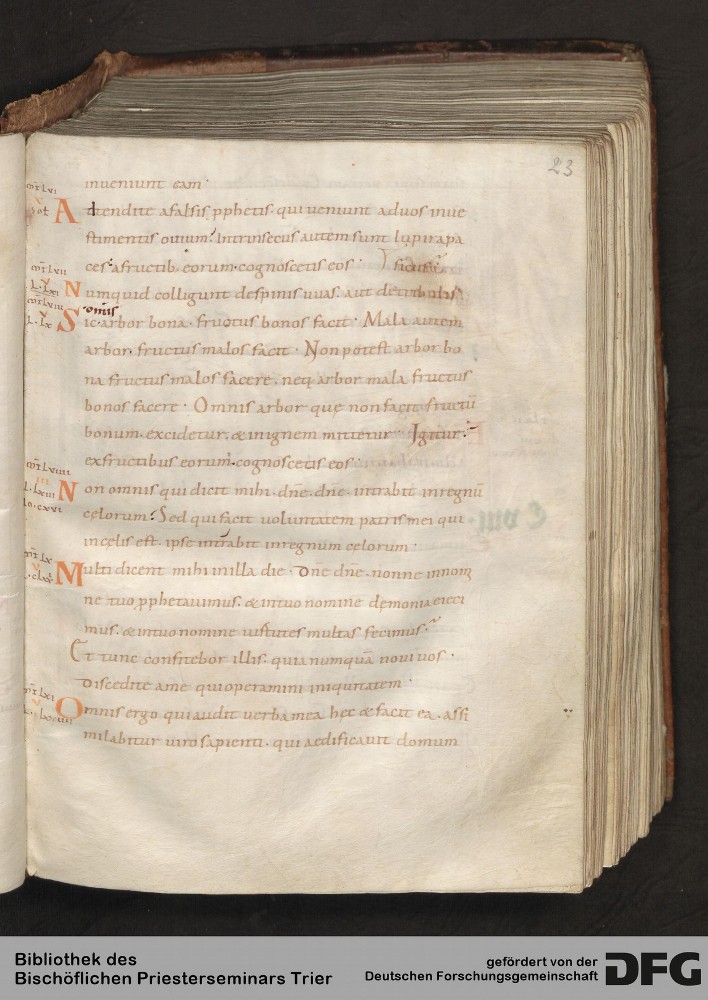 23
inueniunt eam·
Adtendite afalsis pphetis· qui ueniunt aduos inue
stimentis ouium· Intrinsecus autem sunt lupi rapa
ces· afructib; eorum· cognoscetis eos·
Numquid colligunt despinis uuas· aut detribulis
omnis
Sic· arbor bona· fructus bonos facit· Mala autem
arbor· fructus malos facit· Non potest arbor bo
na fructus malos facere· neq; arbor mala fructus
bonos facere· Omnis arbor que non facit fructū
bonum· excidetur· & inignem mittetur· Igitur·
exfructibus eorum· cognoscetis eos·
Non omnis qui dicit mihi· dn̄e· dn̄e· intrabit inregnū
celorum· Sed qui facit uoluntatem patris mei qui
incelis est· ipse intrabit inregnum celorum·
Multi dicent mihi inilla die· Dn̄e dn̄e· nonne innomi
ne tuo pphetauimus· & intuo nomine demonia eieci
mus· & intuo nomine uirtutes multas fecimus·
Et tunc confitebor illis· quia numquā noui uos·
Discedite ame qui operamini iniquitatem·
Omnis ergo qui audit uerba mea hec & facit ea· assi
milabitur uiro sapienti· qui aedificauit domum
Bibliothek des
Bischöflichen Priesterseminars Trier
gefördert von der
Deutschen Forschungsgemeinschaft
DFG